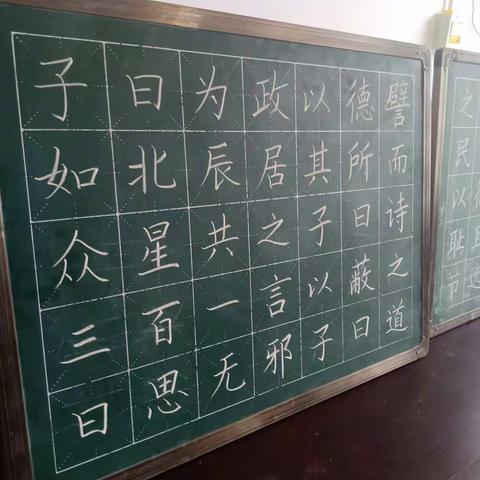 子曰为政以德譬
如北辰居其所而
众星共之子曰诗
三百一言以蔽之
曰思无邪子曰道
之
民
以
耻且
节选